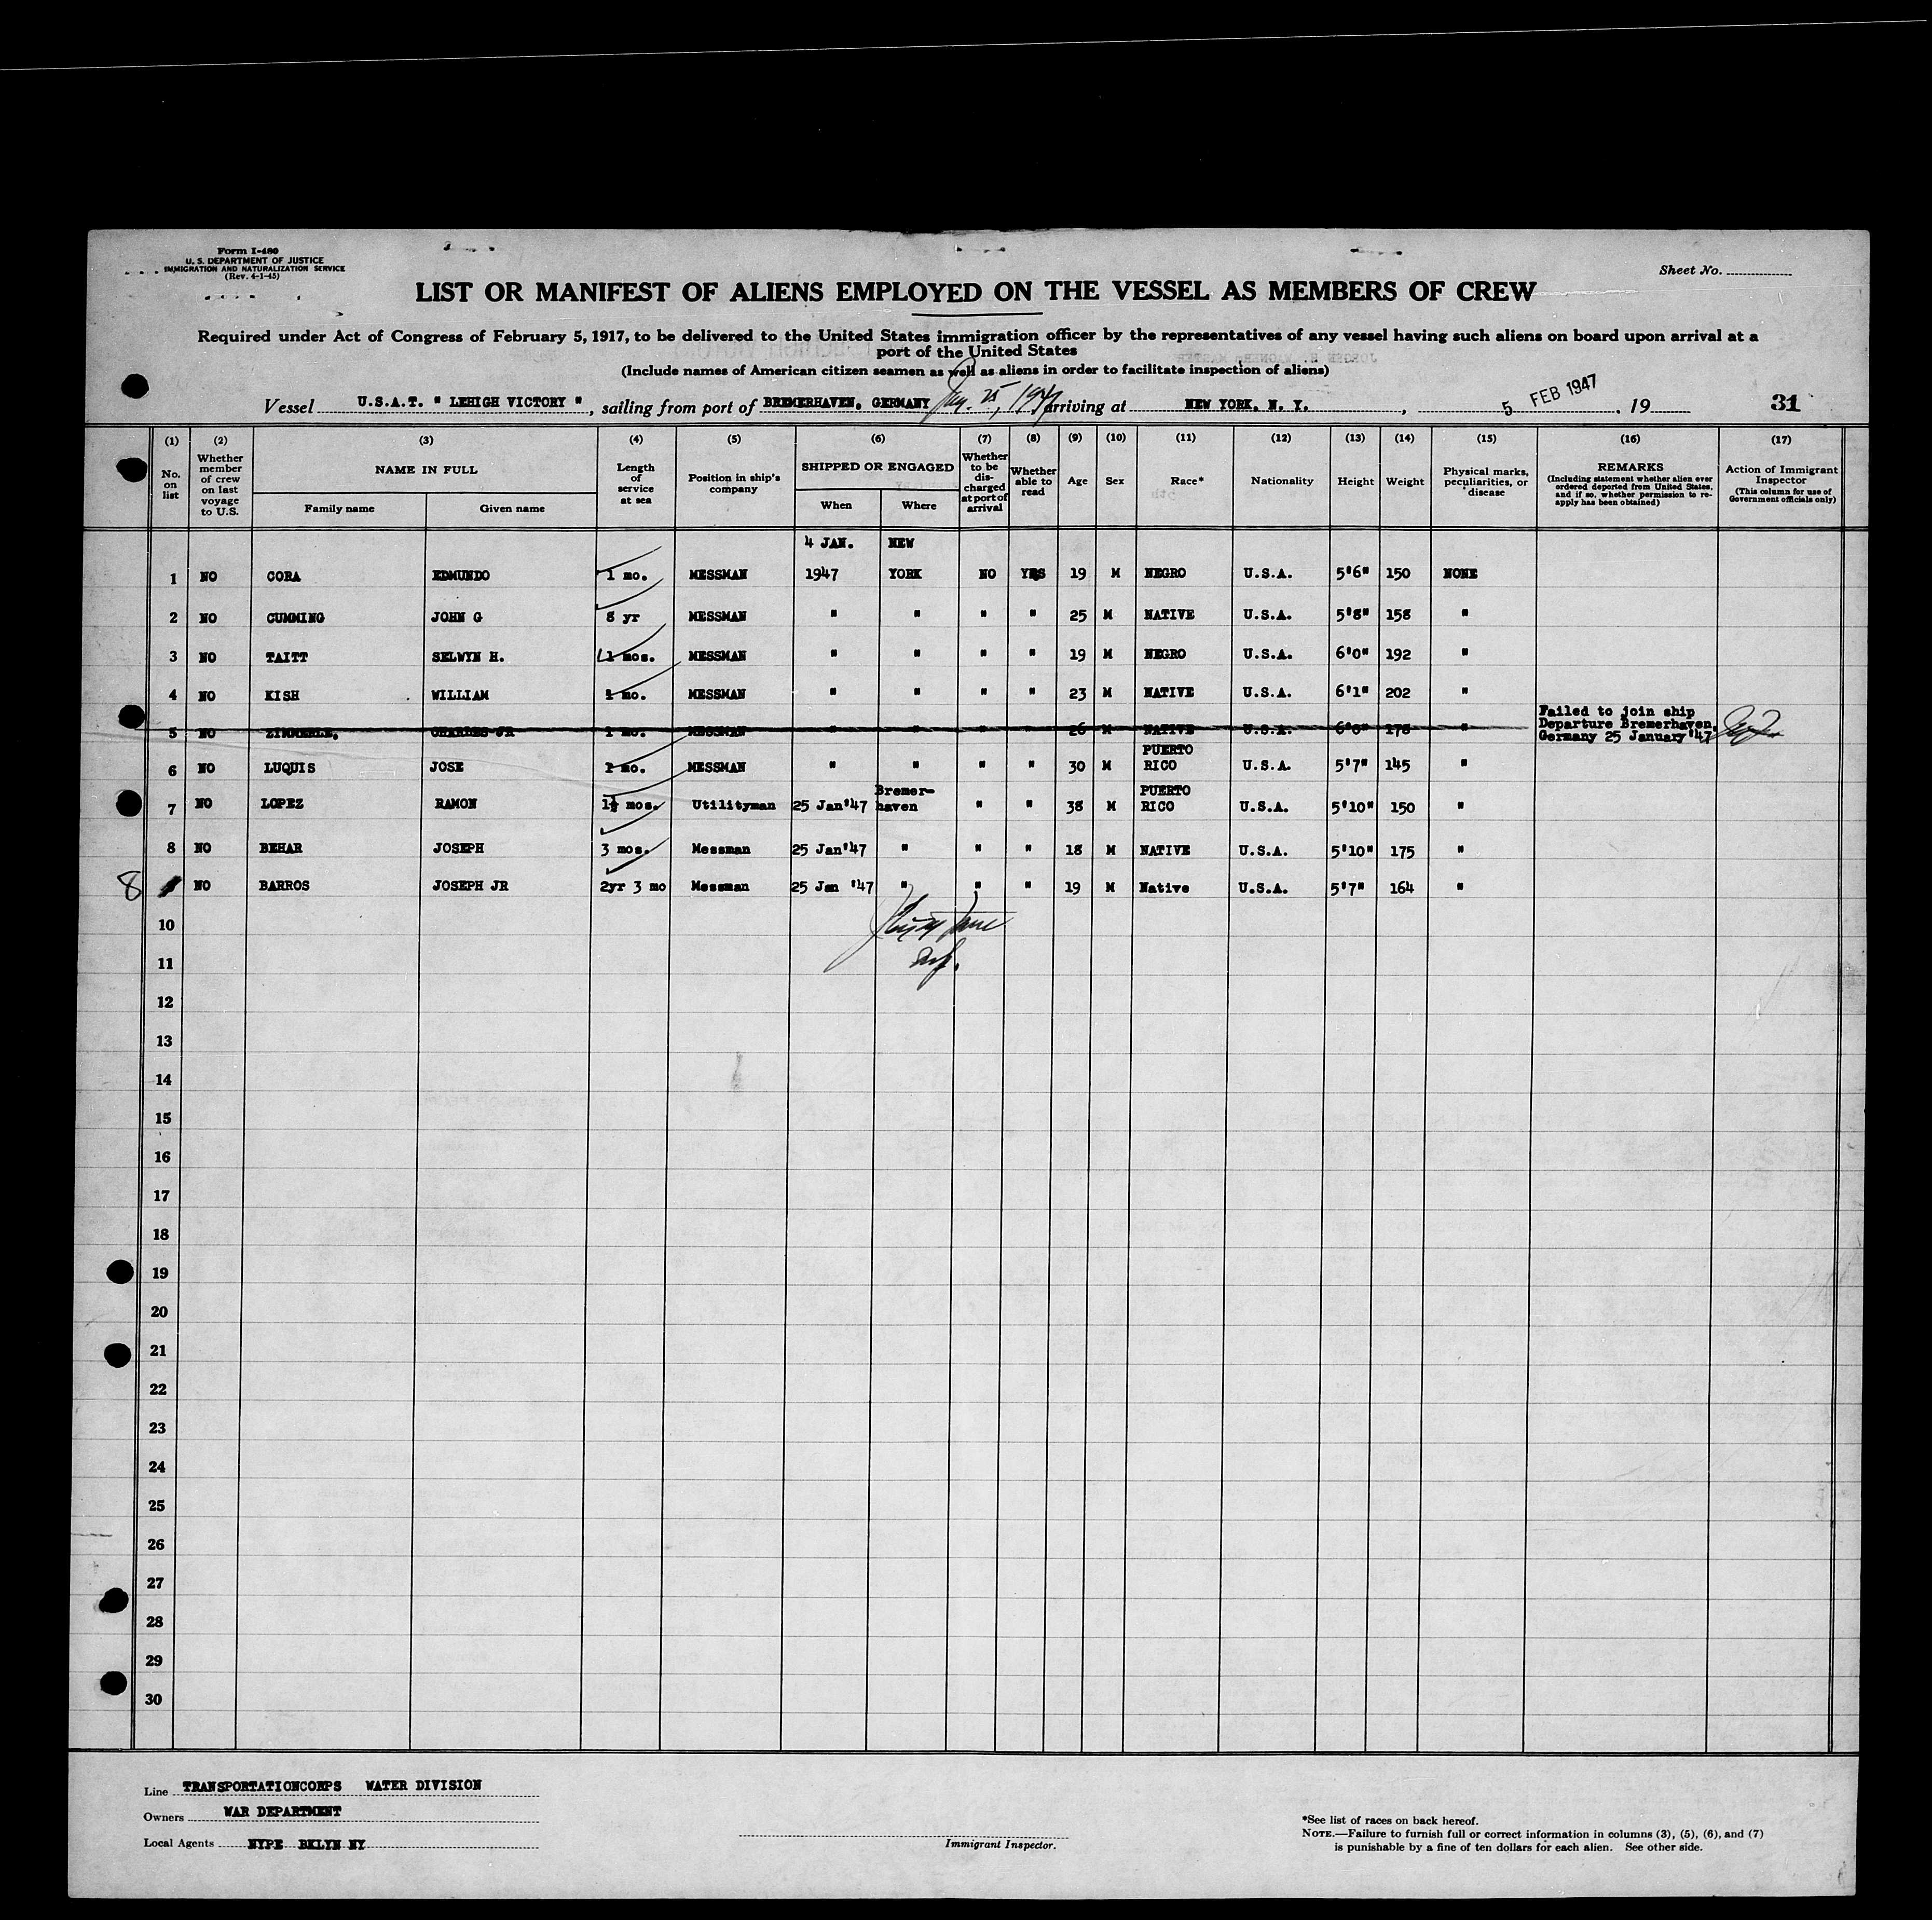 Form I-480
U. S. DEPARTMENT OF JUSTICE
IMMIGRATION AND NATURALIZATION SERVICE
(Rev. 4-1-45)
Sheet No.
LIST OR MANIFEST OF ALIENS EMPLOYED ON THE VESSEL AS MEMBERS OF CREW
Required under Act of Congress of February 5, 1917, to be delivered to the United States immigration officer by the representatives of any vessel having such aliens on board upon arrival at a
port of the United States
(Include names of American citizen seamen as well as aliens in order to facilitate inspection of aliens)
Vessel U.S.A.T. " LEHIGH VICTORY " , sailing from port of BREMERHAVEN, GERMANY Jan. 25, 1947 arriving at NEW YORK, N. Y. , 5 FEB 1947 , 19 31
(1) (2) (3) (4) (5) (6) (7) (8) (9) (10) (11) (12) (13) (14) (15) (16) (17)
No. on list
Whether member of crew on last voyage to U.S.
NAME IN FULL
Family name
Given name
Length of service at sea
Position in ship's company
SHIPPED OR ENGAGED
When
Where
Whether to be discharged at port of arrival
Whether able to read
Age
Sex
Race*
Nationality
Height
Weight
Physical marks, peculiarities, or disease
REMARKS
(Including statement whether alien ever ordered deported from United States, and if so, whether permission to reapply has been obtained)
Action of Immigrant Inspector
(This column for use of Government officials only)
4 JAN. NEW
1 NO CORA EDMUNDO 1 mo. MESSMAN 1947 YORK NO YES 19 M NEGRO U.S.A. 5'6" 150 NONE
2 NO CUMMING JOHN G 8 yr MESSMAN " " " " 25 M NATIVE U.S.A. 5'8" 158 "
3 NO TAITT SELWYN H. 1 mos. MESSMAN " " " " 19 M NEGRO U.S.A. 6'0" 192 "
4 NO KISH WILLIAM 1 mo. MESSMAN " " " " 23 M NATIVE U.S.A. 6'1" 202 "
5 NO ZIMMERLE, CHARLES JR 1 mo. MESSMAN " " " " 26 M NATIVE U.S.A. 6'0" 178 "
Failed to join ship
Departure Bremerhaven,
Germany 25 January '47
PUERTO
6 NO LUQUIS JOSE 1 mo. MESSMAN " " " " 30 M RICO U.S.A. 5'7" 145 "
Bremer- PUERTO
7 NO LOPEZ RAMON 1½ mos. Utilityman 25 Jan'47 haven " " 38 M RICO U.S.A. 5'10" 150 "
8 NO BEHAR JOSEPH 3 mos. Messman 25 Jan'47 " " " 18 M NATIVE U.S.A. 5'10" 175 "
8 NO BARROS JOSEPH JR 2yr 3 mo Messman 25 Jan '47 " " " 19 M Native U.S.A. 5'7" 164 "
10
11
12
13
14
15
16
17
18
19
20
21
22
23
24
25
26
27
28
29
30
Line TRANSPORTATIONCORPS WATER DIVISION
Owners WAR DEPARTMENT
Local Agents NYPE BKLYN NY
Immigrant Inspector.
*See list of races on back hereof.
NOTE.—Failure to furnish full or correct information in columns (3), (5), (6), and (7)
is punishable by a fine of ten dollars for each alien. See other side.